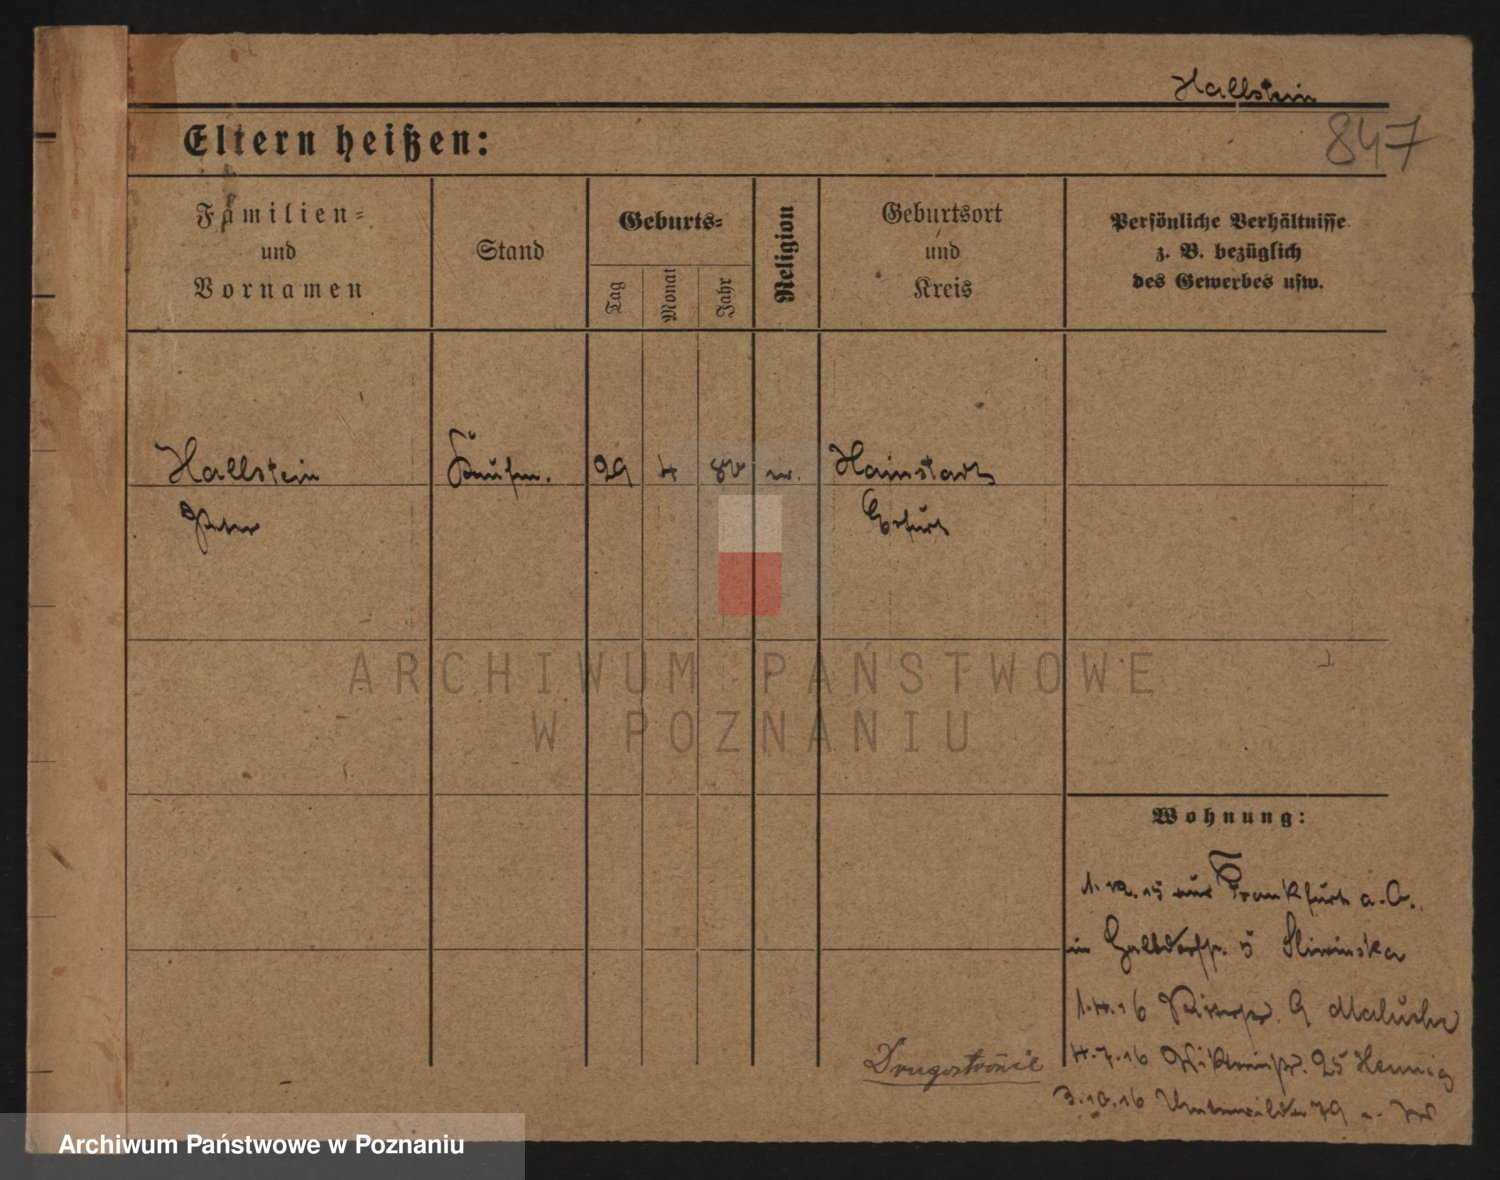 Hallstein
847
Eltern heißen:
Familien-
und
Vornamen
Stand
Geburts-
Tag
Monat
Jahr
Religion
Geburtsort
und
Kreis
Persönliche Verhältnisse
z. B. bezüglich
des Gewerbes usw.
Hallstein
Kaufm.
29
4
Hainstadt
Peter
Erfurt
ARCHIWUM PAŃSTWOWE
W POZNANIU
Wohnung:
1.12.15 aus Frankfurt a.O.
in 5 Sliwinska
1.4.16 Ritterstr. 9
4.7.16 25 Hennig
3.10.16 79
Drugostronie
Archiwum Państwowe w Poznaniu